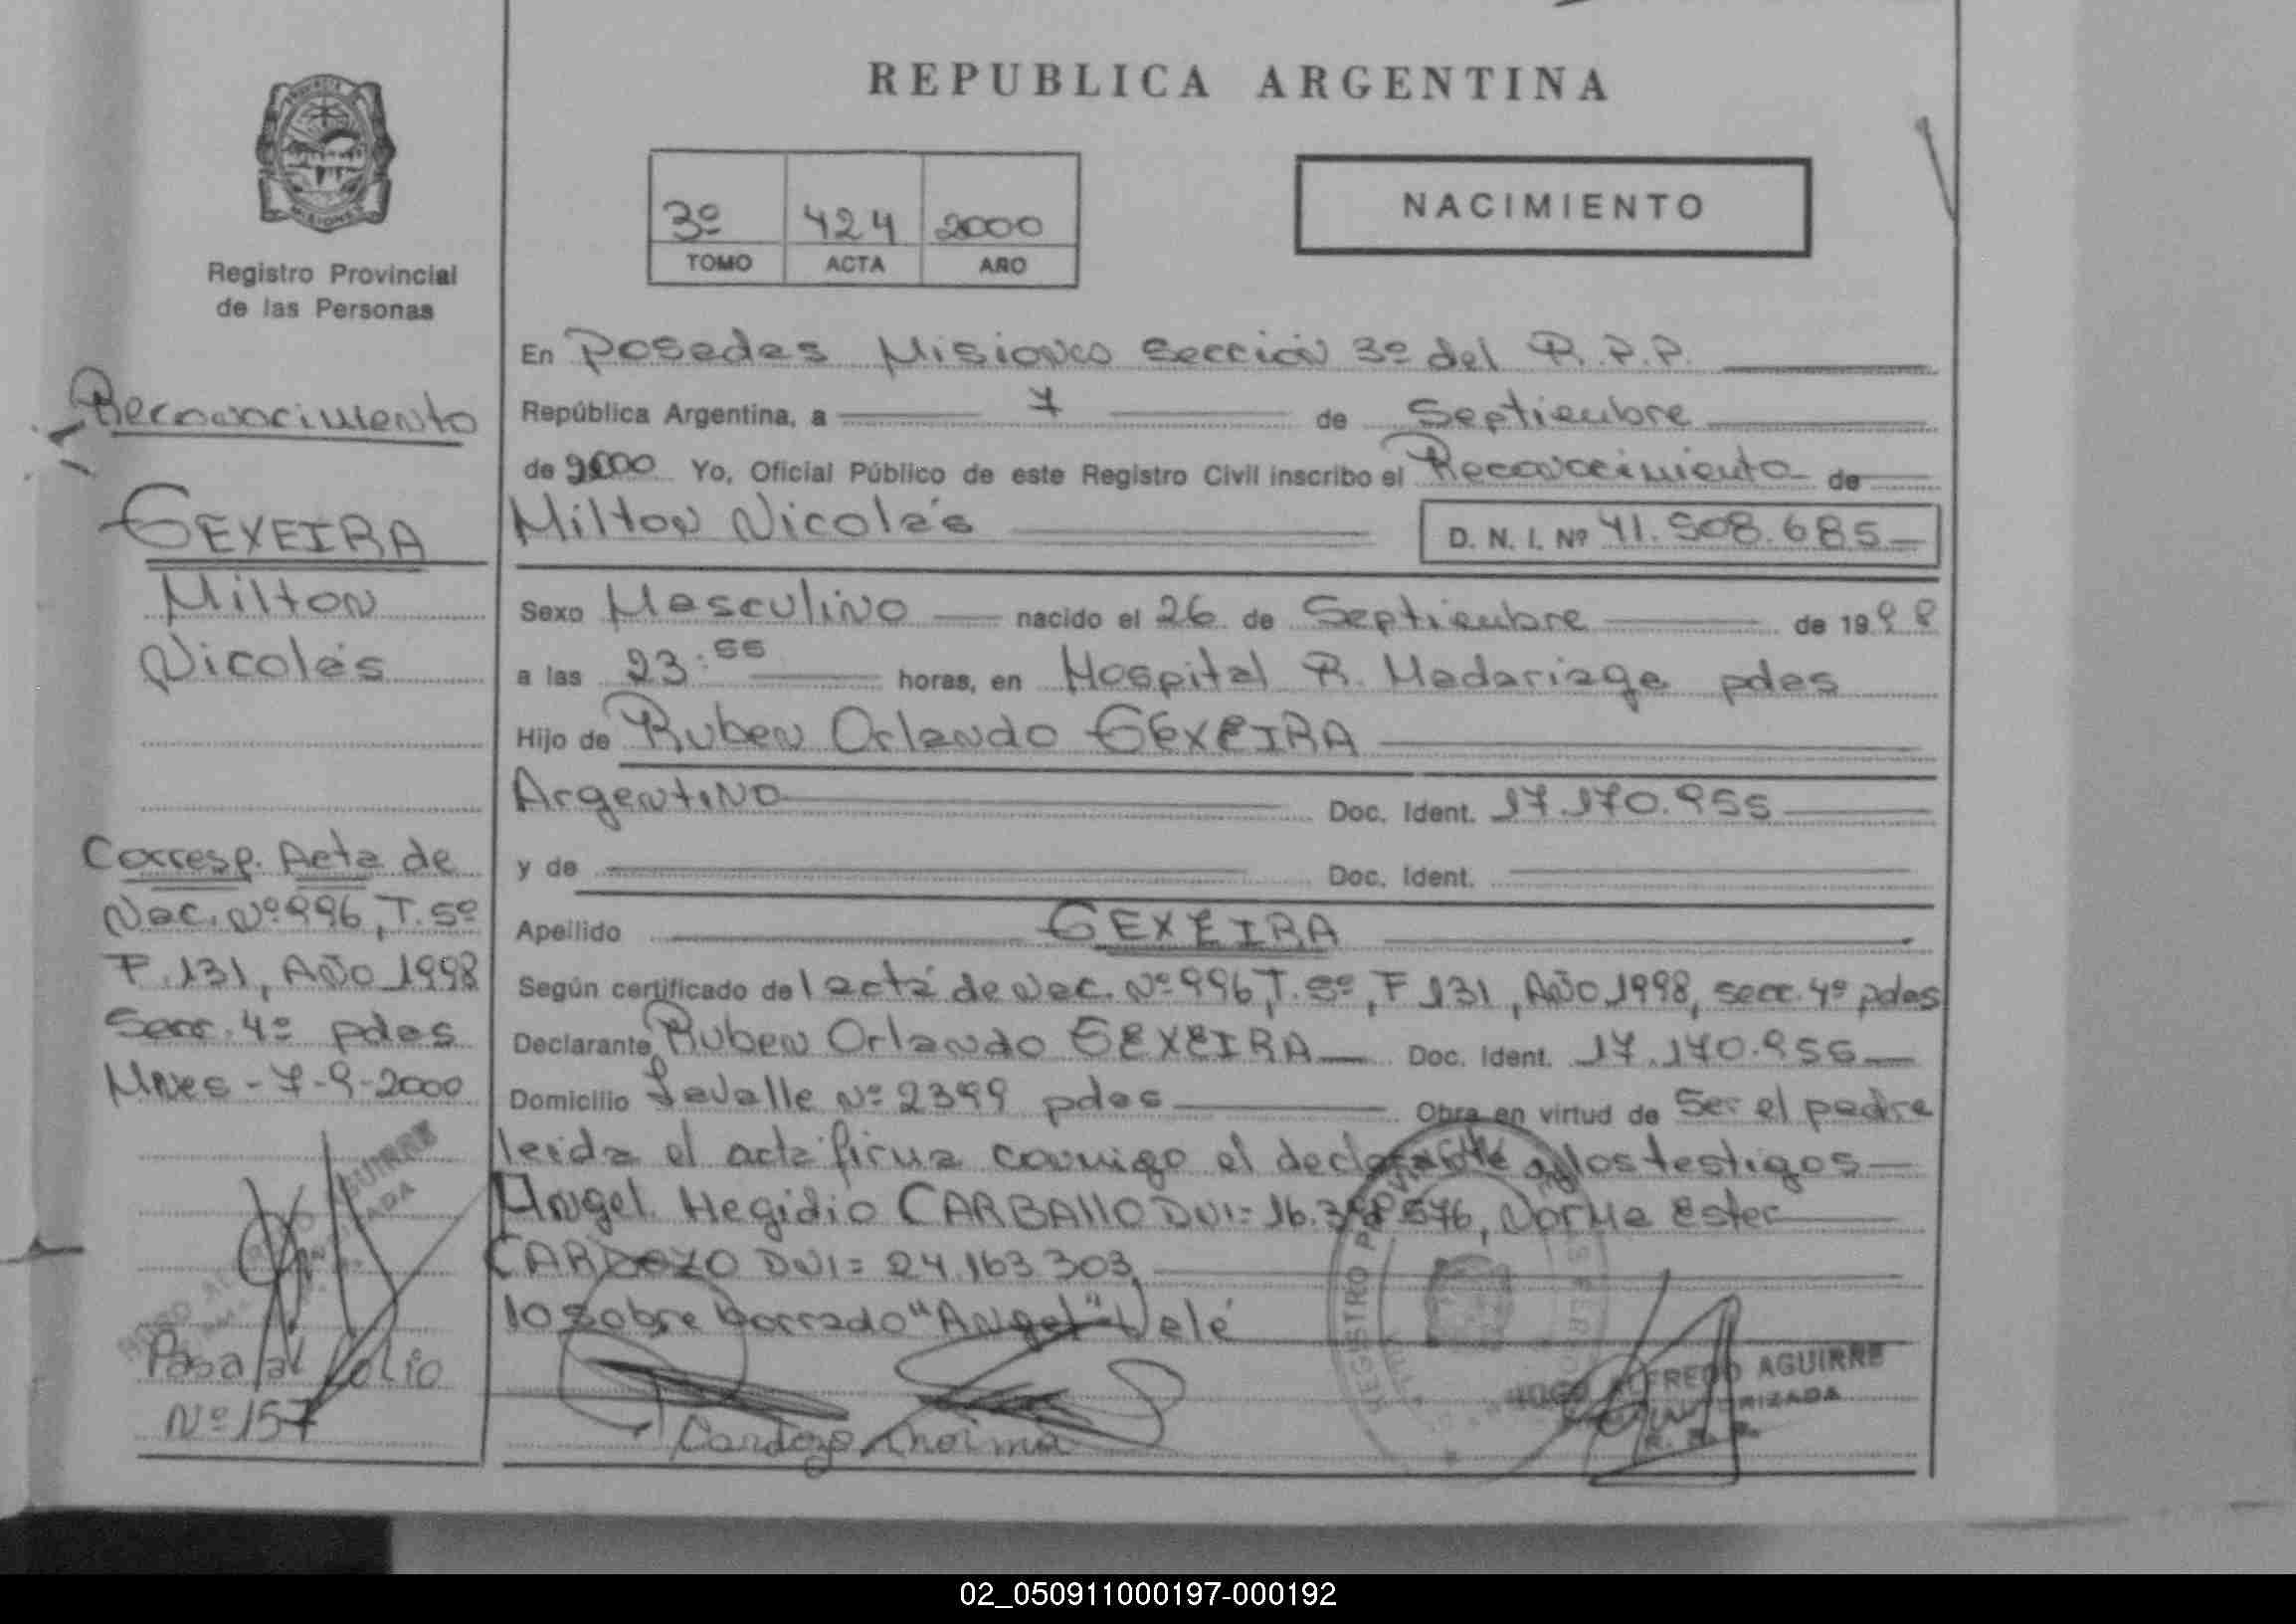 REPUBLICA ARGENTINA
3º 424 2000
TOMO ACTA AÑO
NACIMIENTO
MISIONES
Registro Provincial
de las Personas
Reconocimiento
GEXEIRA
Milton
Nicolás
Corresp. Acta de
Nac. Nº 996, T. 5º
F. 131, Año 1998
Secc. 4º pdas
Mnes - 7-9-2000
Pasa al folio
Nº 157
En Posadas Misiones Sección 3º del R.P.P.
República Argentina, a 7 de Septiembre
de 2000 Yo, Oficial Público de este Registro Civil inscribo el Reconocimiento de
Milton Nicolás D. N. I. Nº 41.508.685
Sexo Masculino nacido el 26 de Septiembre de 1998
a las 23:55 horas, en Hospital R. Madariaga pdas
Hijo de Ruben Orlando GEXEIRA
Argentino Doc. Ident. 17.170.955
y de Doc. Ident.
Apellido GEXEIRA
Según certificado del acta de Nac. Nº 996, T. 5º, F 131, Año 1998, secc. 4º pdas
Declarante Ruben Orlando GEXEIRA Doc. Ident. 17.170.955
Domicilio Lavalle Nº 2399 pdas Obra en virtud de Ser el padre
leida el acta firma conmigo el declarante y los testigos
Angel Hegidio CARBAllO DNI= 16. , Norma Ester
CARDOZO DNI= 24.163.303,
lo sobre borrado "Angel" Vale
Cardozo Norma
REGISTRO
HUGO ALFREDO AGUIRRE
AUTORIZADA
R. P. P.
02_050911000197-000192